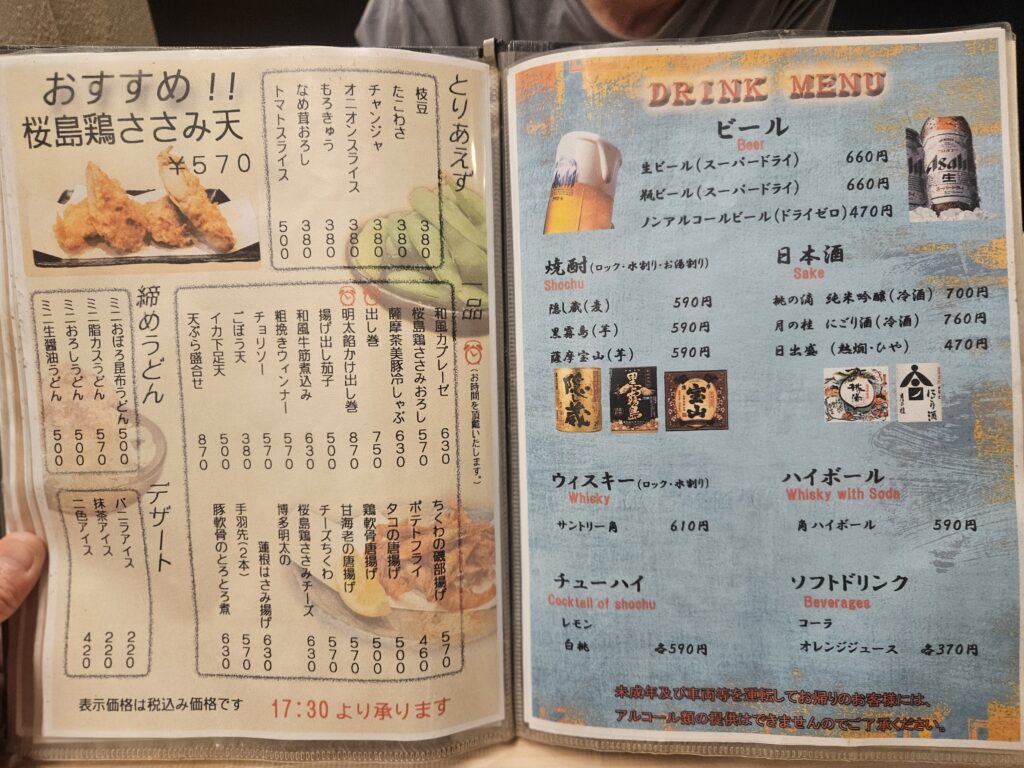 おすすめ!!
桜島鶏ささみ天
¥570
とりあえず
枝豆 380
たこわさ 380
チャンジャ 380
オニオンスライス 380
もろきゅう 380
なめ茸おろし 380
トマトスライス 500
一品
(お時間を頂戴いたします。)
和風カプレーゼ 630
桜島鶏ささみおろし 570
薩摩茶美豚冷しゃぶ 630
出し巻 750
明太餡かけ出し巻 870
揚げ出し茄子 500
和風牛筋煮込み 630
粗挽きウィンナー 570
チョリソー 570
ごぼう天 380
イカ下足天 500
天ぷら盛合せ 870
ちくわの磯部揚げ 570
ポテトフライ 460
タコの唐揚げ 500
鶏軟骨唐揚げ 500
甘海老の唐揚げ 570
チーズちくわ 570
桜島鶏ささみチーズ 630
博多明太の
蓮根はさみ揚げ 630
手羽先(2本) 570
豚軟骨のとろとろ煮 630
締めうどん
ミニおぼろ昆布うどん 500
ミニ脂カスうどん 570
ミニおろしうどん 500
ミニ生醤油うどん 500
デザート
バニラアイス 220
抹茶アイス 220
二色アイス 420
表示価格は税込み価格です
17:30 より承ります
DRINK MENU
ビール
Beer
生ビール(スーパードライ) 660円
瓶ビール(スーパードライ) 660円
ノンアルコールビール(ドライゼロ) 470円
Asahi
生
焼酎(ロック・水割り・お湯割り)
Shochu
隠し蔵(麦) 590円
黒霧島(芋) 590円
薩摩宝山(芋) 590円
隠蔵
黒霧島
宝山
日本酒
Sake
桃の滴 純米吟醸(冷酒) 700円
月の桂 にごり酒(冷酒) 760円
日出盛 (熱燗・ひや) 470円
にごり酒
月の桂
ウィスキー(ロック・水割り)
Whisky
サントリー角 610円
ハイボール
Whisky with Soda
角ハイボール 590円
チューハイ
Cocktail of shochu
レモン
白桃 各590円
ソフトドリンク
Beverages
コーラ
オレンジジュース 各370円
未成年及び車両等を運転してお帰りのお客様には、
アルコール類の提供はできませんのでご了承ください。